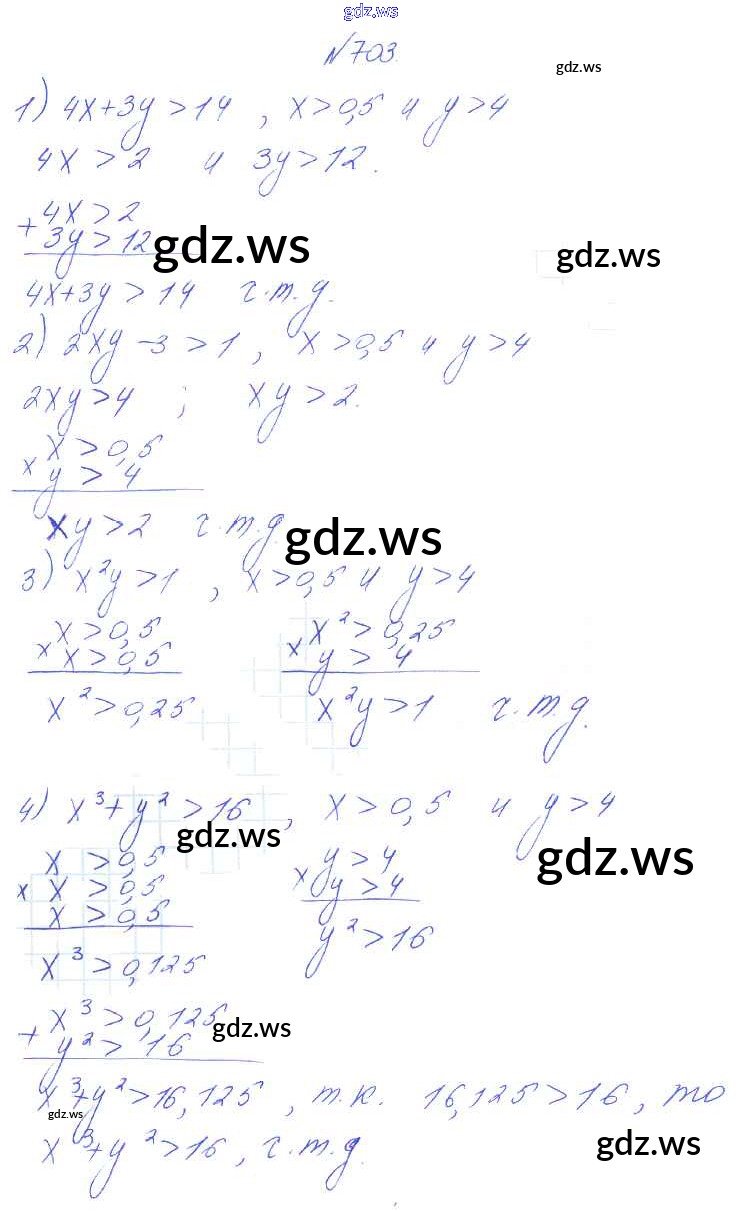 gdz.ws
№703.
gdz.ws
1) 4x+3y>14 , x>0,5 и y>4
4x>2 и 3y>12.
+ 4x>2
3y>12
gdz.ws
gdz.ws
4x+3y>14 ч.т.д.
2) 2xy-3>1 , x>0,5 и y>4
2xy>4 ; xy>2.
x x>0,5
y>4
xy>2 ч.т.д.
gdz.ws
3) x²y>1 , x>0,5 и y>4
x x>0,5 x x²>0,25
x>0,5 y>4
x²>0,25 x²y>1 ч.т.д.
4) x³+y²>16 , x>0,5 и y>4
gdz.ws
gdz.ws
x>0,5 x y>4
x x>0,5 y>4
x>0,5
y²>16
x³>0,125
+ x³>0,125
gdz.ws
y²>16
x³+y²>16,125 , т.к. 16,125>16, то
gdz.ws
x³+y²>16, ч.т.д.
gdz.ws